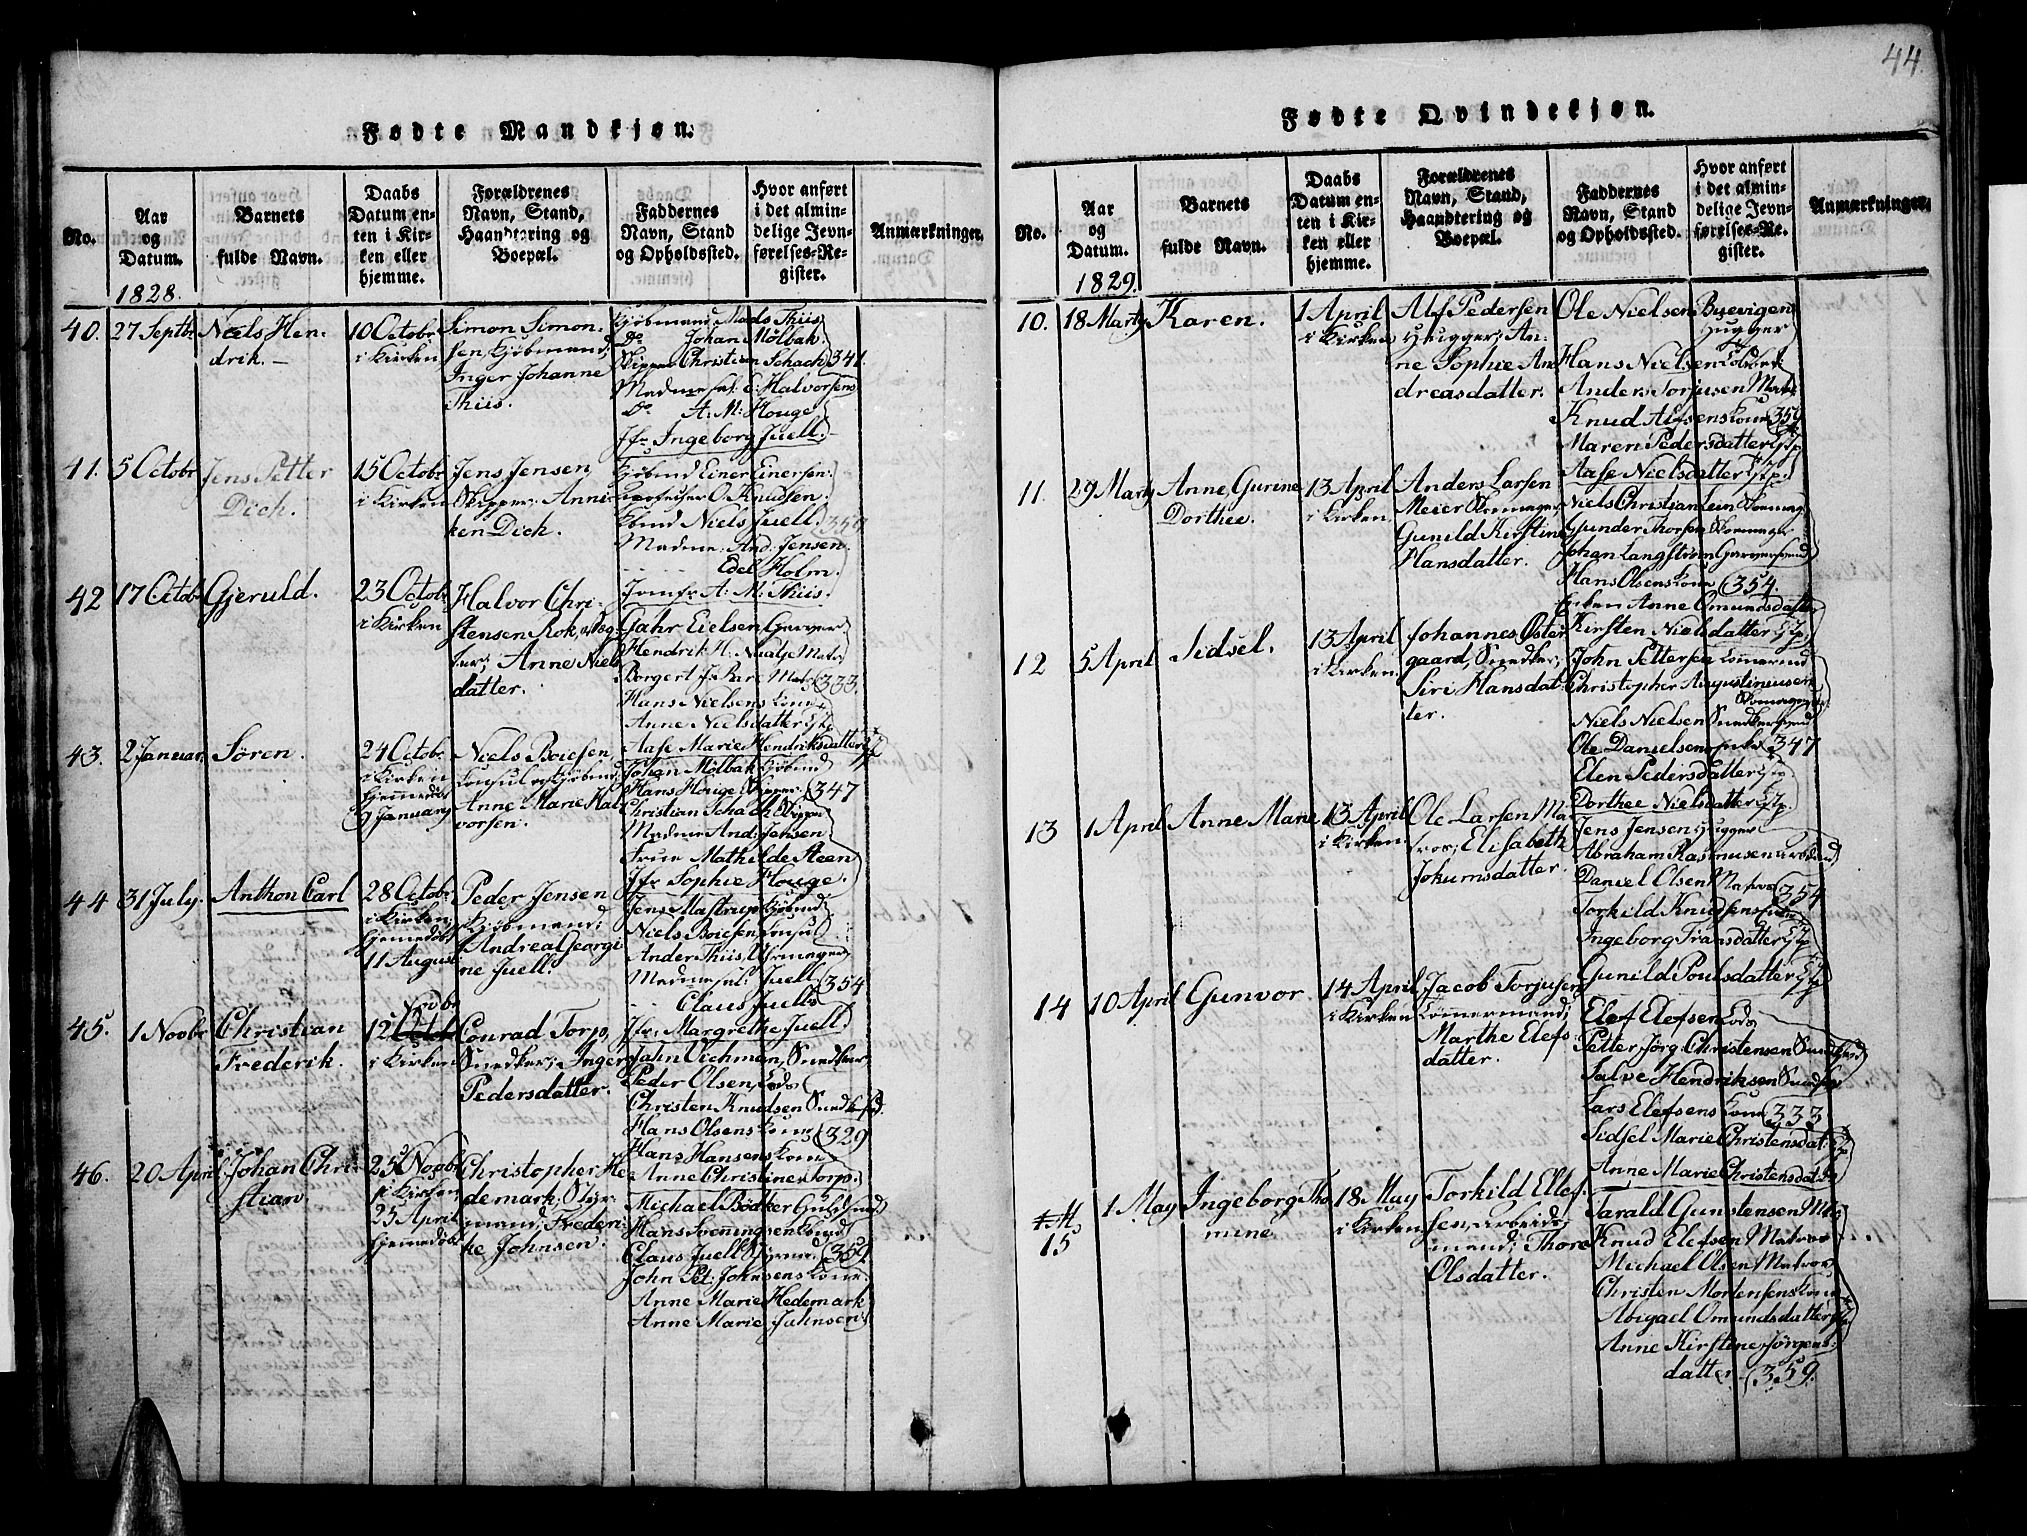 44.
Fødte Mandkjøn.
No.
Aar og Datum.
Barnets fulde Navn.
Daabs Datum enten i Kirken eller hjemme.
Forældrenes Navn, Stand, Haandtering og Boepæl.
Faddernes Navn, Stand og Opholdssted.
Hvor anført i det almindelige Jevnførelses-Register.
Anmærkninger.
1828.
40.
27 Septbr
Niels Hen-
drik. —
10 Octobr
i Kirken
Simon Simon-
sen, Kjøbmand;
Inger Johanne
Thiis.
Kjøbmand Mads Thiis
Do Johan Mölbak
Skipper Christian Schach
341.
Madme sal. C. Halvorsens
Do A: M: Houge
Jfr Ingeborg Juell.
41.
5 Octobr
Jens Petter
Dich.
15 Octobr
i Kirken
Jens Jensen
Skipper; Anni-
ken Dich.
Kjöbmd Einer Einersen
O. Knudsen.
Kbmd Niels Juell.
350
Madme. And: Jensen
Edel Holm.
Jomfr A: M: Thiis.
42
17 Octobr
Gjeruld.
23 Octobr
i Kirken
Halvor Chri-
stensen Rok,
Anne Niels-
datter.
Jahr Eielsen Garver
Hendrik H:
Borgert
333.
Hans Nielsens Kone
Anne Nielsdatter
Aase Marie Hendriksdatter
43.
2 Januar
Sören.
24 Octobr
i Kirken
hjemmedöbt
9 January
Niels Boiesen
Consul og Kjöbmd
Anne Marie Hal-
vorsen.
Johan Mölbak Kjöbmd
Hans Houge Skipper
347
Christian Schach Skipper
Madme And: Jensen
Frue Mathilde Steen
Jfr Sophie Houge.
44
31 July.
Anthon Carl
28 Octobr
i Kirken;
hjemmedöbt
11 August
Peder Jensen
Kjöbmand;
Andrea Georgi-
ne Juell.
Jens Mastrup Kjöbmd
Niels Boiesen Consul
Ander Thiis, Uhrmager
Madme sal. Juell
354
Claus Juells
Jfr. Margrethe Juell.
45.
1 Novbr
Christian
Frederik.
Novbr
12 Octbr
i Kirken
Conrad Torp,
Snedker; Inger
Pedersdatter.
Jahn Vichman, Snedker
Peder Olsen, Lods
Christen Knudsen Snedk. sd.
Hans Olsens Kone
329
Hans Hansens Kone
Anne Christine Torp.
46.
20 April
Johan Chri-
stian.
23 Novbr
i Kirken
25 April
hjemmedöbt
Christopher He-
demark, Styr-
mand; Frederi-
ke Johnsen.
Michael Bödker Guldsmed
Hans Svenningsen
Claus Juell Styrmd.
354
John Pet: Johnsens Kone
Anne Marie Hedemark
Anne Marie Jahnsen
Fødte Qvindekjøn.
No.
Aar og Datum.
Barnets fulde Navn.
Daabs Datum enten i Kirken eller hjemme.
Forældrenes Navn, Stand, Haandtering og Boepæl.
Faddernes Navn, Stand og Opholdssted.
Hvor anført i det almindelige Jevnførelses-Register.
Anmærkninger.
1829.
10.
18 Marty
Karen.
1 April
i Kirken
Alf Pedersen
Hugger; An-
ne Sophie An-
dreasdatter.
Ole Nielsen Buevigen
Hugger
Hans Nielsen
Anders Torjusen Matr
Knud Alfsens Kone
350
Maren Pedersdatter
Aase Nielsdatter
11.
29 Marty
Anne Gurine
Dorthee.
13 April
i Kirken
Anders Larsen
Meier Skomager,
Gunild Kirstine
Hansdatter.
Niels Christian Lein Skomag
Gunder Thorsen Skomager
Johan Langström Garversvend
Hans Olsens Kone
354
Enken Anne Omundsdatter
Kirsten Nielsdatter
12
5 April
Sidsel.
13 April
i Kirken
Johannes Öster-
gaard, Snedker;
Siri Hansdat-
ter.
John Pettersen Tömermd
Christopher Augustinusen
Skomager
Niels Nielsen Snedkersvend
Ole Danielsens Enke
347
Elen Pedersdatter
Dorthee Nielsdatter
13
1 April
Anne Marie
13 April
i Kirken
Ole Larsen Ma-
tros; Elisabeth
Jokumsdatter.
Jens Jensen Hugger
Abraham Rasmusen Arbdmd
Daniel Olsen Matros
354
Torkild Knudsens
Ingeborg Fransdatter
Gunild Poulsdatter
14
10 April
Gunvor.
14 April
i Kirken
Jacob Torjusen
Tömermand;
Marthe Elefs-
datter.
Elef Elefsen Lods
Petter Jörg: Christensen
Salve Hendriksen Snedker
Lars Elefsens Kone
333
Sidsel Marie Christensdat:
Anne Marie Christensdat:
15
1 May
Ingeborg Tho-
mine
18 May
i Kirken
Torkild Ellef-
sen, Arbeids-
mand; Thore
Olsdatter.
Tarald Gunstensen
Knud Elefsen Matros
Michael Olsen Matros
Christen Mortensens Kone
Abigael Omundsdatter
Anne Kirstine Jörgens-
datter
359.